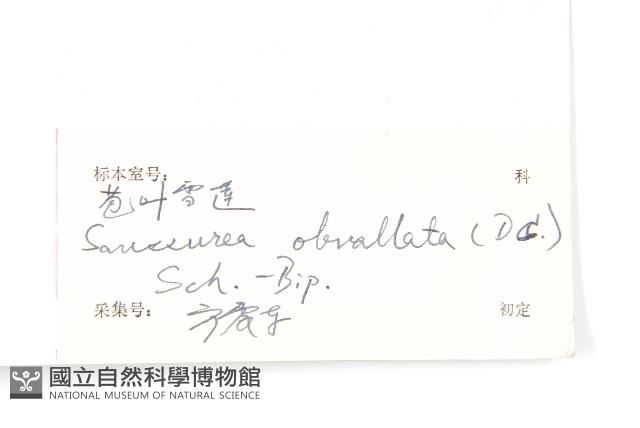 标本室号: 科
苞叶雪莲
Saussurea obvallata (DC.)
Sch.-Bip.
采集号: 初定
國立自然科學博物館
NATIONAL MUSEUM OF NATURAL SCIENCE